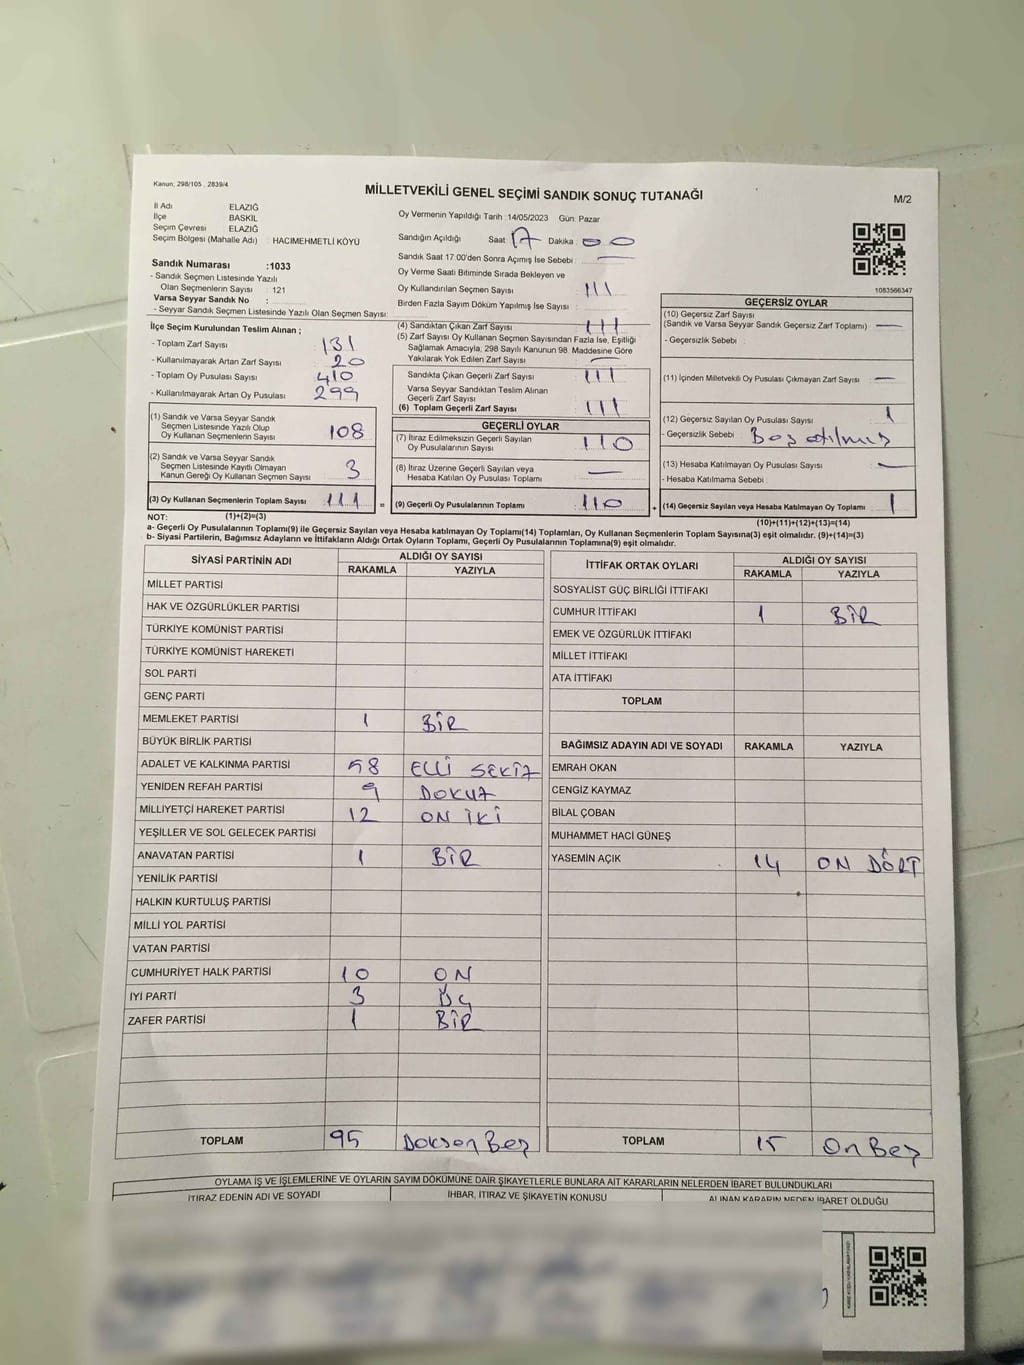 Kanun, 298/105 , 2839/4
MİLLETVEKİLİ GENEL SEÇİMİ SANDIK SONUÇ TUTANAĞI
M/2
İl Adı ELAZIĞ
İlçe BASKİL
Seçim Çevresi ELAZIĞ
Seçim Bölgesi (Mahalle Adı) : HACIMEHMETLİ KÖYÜ
Sandık Numarası :1033
- Sandık Seçmen Listesinde Yazılı
Olan Seçmenlerin Sayısı : 121
Varsa Seyyar Sandık No :
- Seyyar Sandık Seçmen Listesinde Yazılı Olan Seçmen Sayısı:
Oy Vermenin Yapıldığı Tarih :14/05/2023 Gün: Pazar
Sandığın Açıldığı Saat 17 Dakika 00
Sandık Saat 17.00'den Sonra Açımış İse Sebebi :
Oy Verme Saati Bitiminde Sırada Bekleyen ve
Oy Kullandırılan Seçmen Sayısı : 111
Birden Fazla Sayım Döküm Yapılmış İse Sayısı :
1083566347
İlçe Seçim Kurulundan Teslim Alınan ;
- Toplam Zarf Sayısı : 131
- Kullanılmayarak Artan Zarf Sayısı : 20
- Toplam Oy Pusulası Sayısı : 410
- Kullanılmayarak Artan Oy Pusulası : 299
(1) Sandık ve Varsa Seyyar Sandık
Seçmen Listesinde Yazılı Olup
Oy Kullanan Seçmenlerin Sayısı : 108
(2) Sandık ve Varsa Seyyar Sandık
Seçmen Listesinde Kayıtlı Olmayan
Kanun Gereği Oy Kullanan Seçmen Sayısı : 3
(3) Oy Kullanan Seçmenlerin Toplam Sayısı : 111 =
(4) Sandıktan Çıkan Zarf Sayısı : 111
(5) Zarf Sayısı Oy Kullanan Seçmen Sayısından Fazla İse, Eşitliği
Sağlamak Amacıyla, 298 Sayılı Kanunun 98. Maddesine Göre
Yakılarak Yok Edilen Zarf Sayısı :
Sandıkta Çıkan Geçerli Zarf Sayısı : 111
Varsa Seyyar Sandıktan Teslim Alınan
Geçerli Zarf Sayısı :
(6) Toplam Geçerli Zarf Sayısı : 111
GEÇERLİ OYLAR
(7) İtiraz Edilmeksizin Geçerli Sayılan
Oy Pusulalarının Sayısı : 110
(8) İtiraz Üzerine Geçerli Sayılan veya
Hesaba Katılan Oy Pusulası Toplamı :
(9) Geçerli Oy Pusulalarının Toplamı : 110 +
GEÇERSİZ OYLAR
(10) Geçersiz Zarf Sayısı
(Sandık ve Varsa Seyyar Sandık Geçersiz Zarf Toplamı) :
- Geçersizlik Sebebi :
(11) İçinden Milletvekili Oy Pusulası Çıkmayan Zarf Sayısı :
(12) Geçersiz Sayılan Oy Pusulası Sayısı : 1
- Geçersizlik Sebebi : Boş atılmış
(13) Hesaba Katılmayan Oy Pusulası Sayısı :
- Hesaba Katılmama Sebebi :
(14) Geçersiz Sayılan veya Hesaba Katılmayan Oy Toplamı : 1
NOT: (1)+(2)=(3) (10)+(11)+(12)+(13)=(14)
a- Geçerli Oy Pusulalarının Toplamı(9) ile Geçersiz Sayılan veya Hesaba katılmayan Oy Toplamı(14) Toplamları, Oy Kullanan Seçmenlerin Toplam Sayısına(3) eşit olmalıdır. (9)+(14)=(3)
b- Siyasi Partilerin, Bağımsız Adayların ve İttifakların Aldığı Ortak Oyların Toplamı, Geçerli Oy Pusulalarının Toplamına(9) eşit olmalıdır.
SİYASİ PARTİNİN ADI ALDIĞI OY SAYISI
RAKAMLA YAZIYLA
MİLLET PARTİSİ
HAK VE ÖZGÜRLÜKLER PARTİSİ
TÜRKİYE KOMÜNİST PARTİSİ
TÜRKİYE KOMÜNİST HAREKETİ
SOL PARTİ
GENÇ PARTİ
MEMLEKET PARTİSİ 1 BİR
BÜYÜK BİRLİK PARTİSİ
ADALET VE KALKINMA PARTİSİ 58 ELLİ SEKİZ
YENİDEN REFAH PARTİSİ 9 DOKUZ
MİLLİYETÇİ HAREKET PARTİSİ 12 ON İKİ
YEŞİLLER VE SOL GELECEK PARTİSİ
ANAVATAN PARTİSİ 1 BİR
YENİLİK PARTİSİ
HALKIN KURTULUŞ PARTİSİ
MİLLİ YOL PARTİSİ
VATAN PARTİSİ
CUMHURİYET HALK PARTİSİ 10 ON
İYİ PARTİ 3 ÜÇ
ZAFER PARTİSİ 1 BİR
TOPLAM 95 Doksan Beş
İTTİFAK ORTAK OYLARI ALDIĞI OY SAYISI
RAKAMLA YAZIYLA
SOSYALİST GÜÇ BİRLİĞİ İTTİFAKI
CUMHUR İTTİFAKI 1 BİR
EMEK VE ÖZGÜRLÜK İTTİFAKI
MİLLET İTTİFAKI
ATA İTTİFAKI
TOPLAM
BAĞIMSIZ ADAYIN ADI VE SOYADI RAKAMLA YAZIYLA
EMRAH OKAN
CENGİZ KAYMAZ
BİLAL ÇOBAN
MUHAMMET HACI GÜNEŞ
YASEMİN AÇIK 14 ON DÖRT
TOPLAM 15 On Beş
OYLAMA İŞ VE İŞLEMLERİNE VE OYLARIN SAYIM DÖKÜMÜNE DAİR ŞİKAYETLERLE BUNLARA AİT KARARLARIN NELERDEN İBARET BULUNDUKLARI
İTİRAZ EDENİN ADI VE SOYADI İHBAR, İTİRAZ VE ŞİKAYETİN KONUSU ALINAN KARARIN NEDEN İBARET OLDUĞU